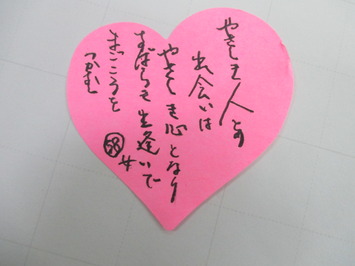 やさしき人との
出会いは
やさしき心となり
すばらしき出逢いで
まごころを
つかむ
68 女